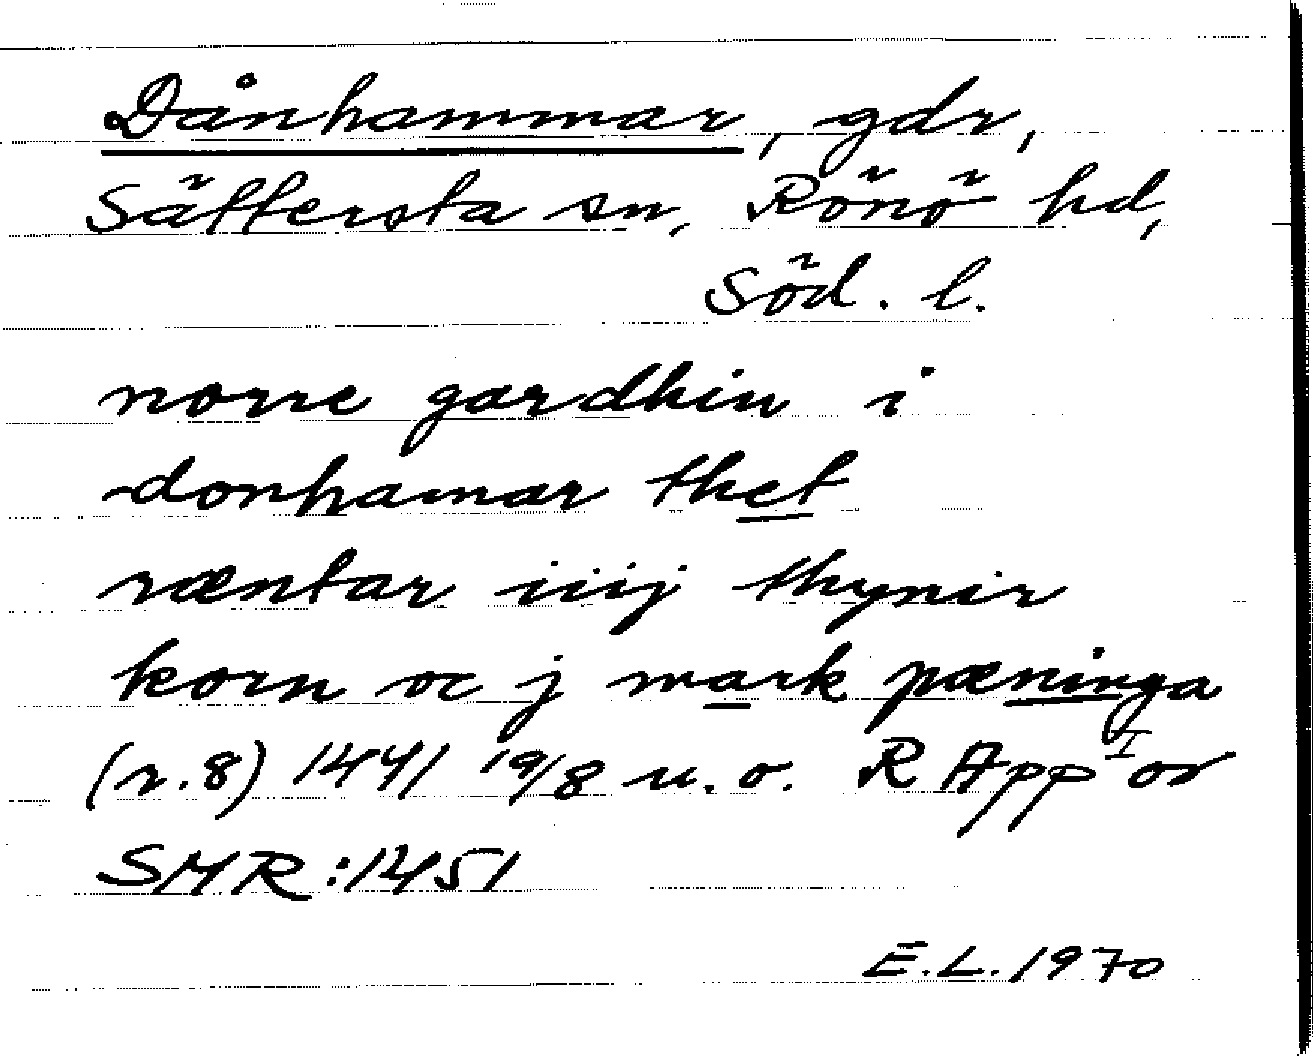 Dånhammar, gdr,
Sättersta sn, Rönö hd,
Söd. l.
norre gardhin i
donhamar thet
ræntar iiij thynir
korn oc j mark pæninga
(r.8) 1441 19/8 u.o. R App I or
SMR:1451
E.L. 1970